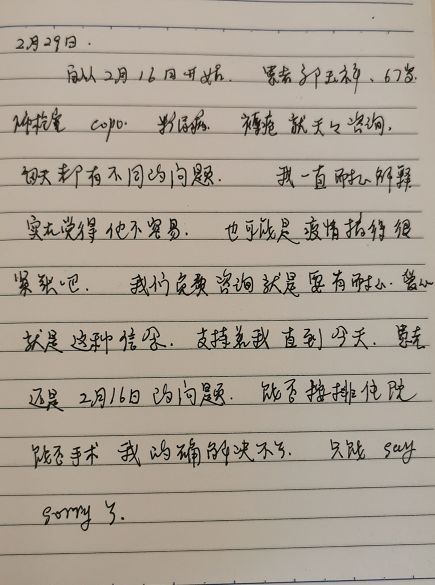 2月29日.
自从2月16日开始. 患者 67岁.
肺栓塞 copo. 糖尿病. 褥疮 就天天咨询.
每天都有不同的问题. 我一直耐心解释
实在觉得他不容易. 也可能是疫情搞得很
紧张吧. 我们免费咨询就是要有耐心. 爱心
就是这种信念. 支持着我直到今天. 患者
还是2月16日的问题. 能否接排住院
能否手术 我的确解决不了. 只能 say
sorry 了.